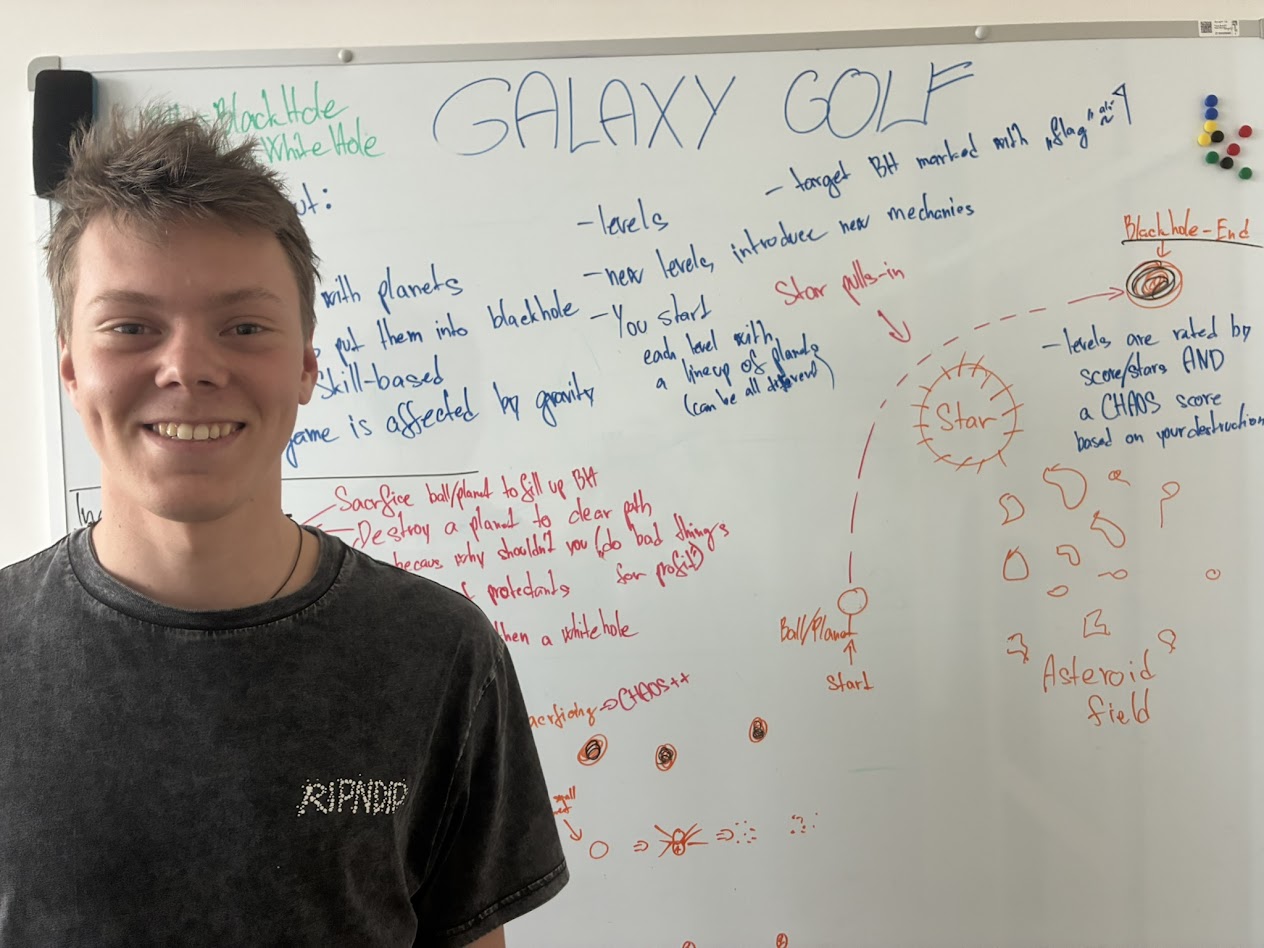 GALAXY GOLF
BlackHole
WhiteHole
ut:
with planets
put them into blackhole
Skill-based
game is affected by gravity
- levels
- new levels introduce new mechanics
- You start
each level with
a lineup of planets
(can be all different)
- target BH marked with "flag"
Star pulls-in
Blackhole-End
Star
- levels are rated by
score/stars AND
a CHAOS score
based on your destruction
Sacrfice ball/planet to fill up BH
Destroy a planet to clear path
becaus why shouldn't you (do bad things
for profit)
protectants
then a whitehole
CHAOS++
Ball/Planet
start
Asteroid
field
RIPNDIP